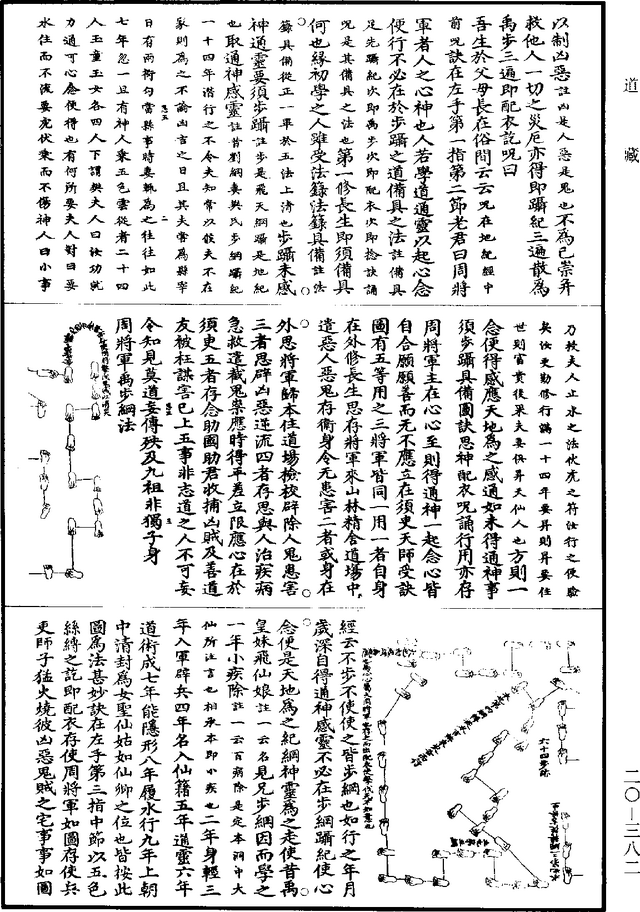 道藏
以制凶惡註凶是人惡是鬼也不為已祟并
救他人一切之災厄亦得即躡紀三遍散為
禹步三遍即配衣訖呪曰
吾生於父母長在俗間云云呪在地紀經中
前呪訣在左手第一指第二節老君曰周將
軍者人之心神也人若學道通靈以起心念
便行不必在於步躡之道備具之法註備具
足先躡紀次即禹步次即配本次即捻訣誦
呪是其備具之法也第一修長生即須備具
何也緣初學之人雖受法籙法籙具備註法
籙具備從正一畢於五法上清也步躡未感
神通靈要須步躡註步是飛天綱躡是地紀
也取通神感靈註昔劉綱妻奧氏步綱躡紀
一十四年潜行之不令夫知常以候夫不在
家則為之不論凶吉之日且其夫常為縣宰
日有兩衙勾當縣事時妻輒為之往往如此
七年忽一旦有神人乘五色雲從者二十四
人玉童玉女各四人下謂奧夫人曰汝功就
力通可心念使得也有何所要夫人對曰要
水住而不流要虎伏乘而不傷神人曰小事
乃教夫人止水之法伏虎之符汝行之便驗
矣汝更勤修行滿一十四年要昇則昇要住
世則富貴後果夫妻俱昇天仙人也方則一
念便得感應天地為之感通如未得通神事
須步躡具備圖訣思神配衣呪誦行用亦存
周將軍主在心心至則得通神一起念心皆
自合願願善而无不應立在須吏天師受訣
圖有五等用之三將軍皆同一用一者自身
在外修長生思存將軍來山林精舍道塲中
遣惡人惡鬼存衛身令无患害二者或身在
外思將軍歸本住道塲檢校辟除人鬼患害
三者思辟凶惡逆流四者存思與人治疾病
急救遣截鬼祟應時得平差立限應心在於
須吏五者存念助國助君收捕凶賊及善道
友被枉謀害已上五事非志道之人不可妄
令知見莫道妄傳殃及九祖非獨子身
周將軍禹步綱法
六十四步除
經云不步不使使之皆步綱也如行之年月
歲深自得通神感靈不必在步綱躡紀使心
念使是天地為之紀綱神靈為之走使昔禹
皇妹飛仙娘註一云名見兄步綱因而學之
一年小疾除註一云百病除是定本洞中大
仙所注言也相承本即小疾也二年身輕三
年入軍辟兵四年名入仙籍五年通靈六年
道術成七年能隱形八年履水行九年上朝
中清封為女聖仙姑如仙卿之位也皆按此
圖為法甚妙訣在左手第三指中節以五色
絲縛之訖即配衣存使周將軍如圖存使兵
吏師子猛火燒彼凶惡鬼賊之宅事事如圖
二〇—三八二